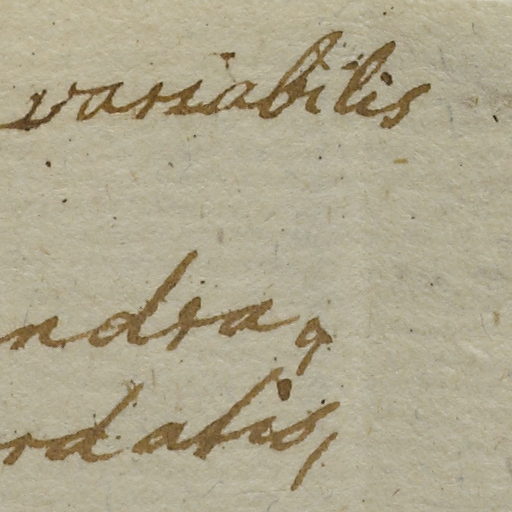 variabilis
ndra,
rdatis,